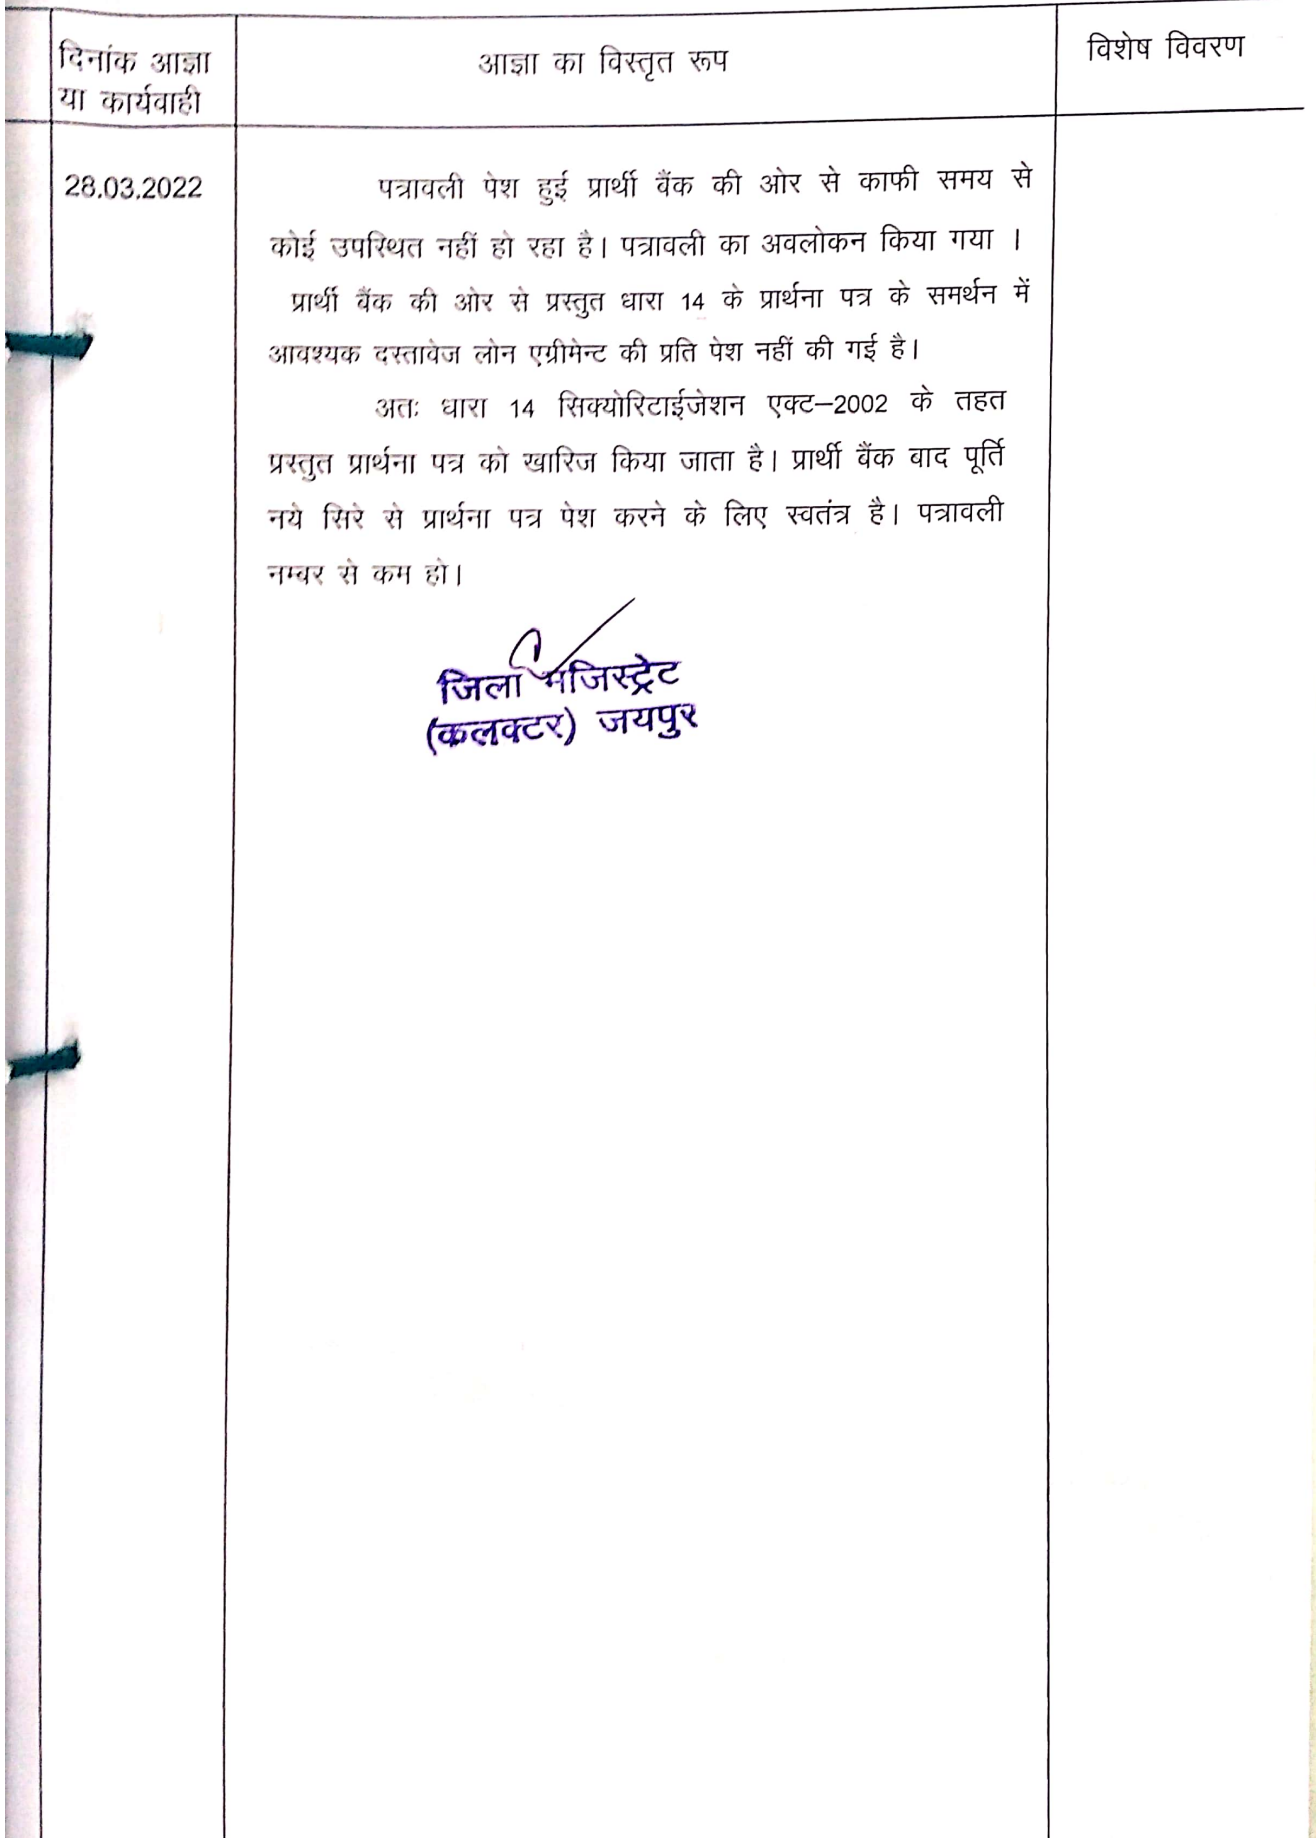 दिनांक आज्ञा
या कार्यवाही
आज्ञा का विस्तृत रूप
विशेष विवरण
28.03.2022
पत्रावली पेश हुई प्रार्थी बैंक की ओर से काफी समय से
कोई उपस्थित नहीं हो रहा है। पत्रावली का अवलोकन किया गया ।
प्रार्थी बैंक की ओर से प्रस्तुत धारा 14 के प्रार्थना पत्र के समर्थन में
आवश्यक दस्तावेज लोन एग्रीमेन्ट की प्रति पेश नहीं की गई है।
अतः धारा 14 सिक्योरिटाईजेशन एक्ट–2002 के तहत
प्रस्तुत प्रार्थना पत्र को खारिज किया जाता है। प्रार्थी बैंक बाद पूर्ति
नये सिरे से प्रार्थना पत्र पेश करने के लिए स्वतंत्र है। पत्रावली
नम्बर से कम हो।
जिला मजिस्ट्रेट
(कलक्टर) जयपुर